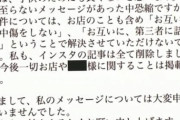 至らないメッセージがあった中恐縮ですが
件については、お店のことも含め「お互い
中傷をしない」、「お互いに、第三者に話
」ということで解決させていただけないで
し、インスタの記事は全て削除しまし
今後一切お店や
様に関することは掲載
まして、私のメッセージについては大変申
いませんでした。